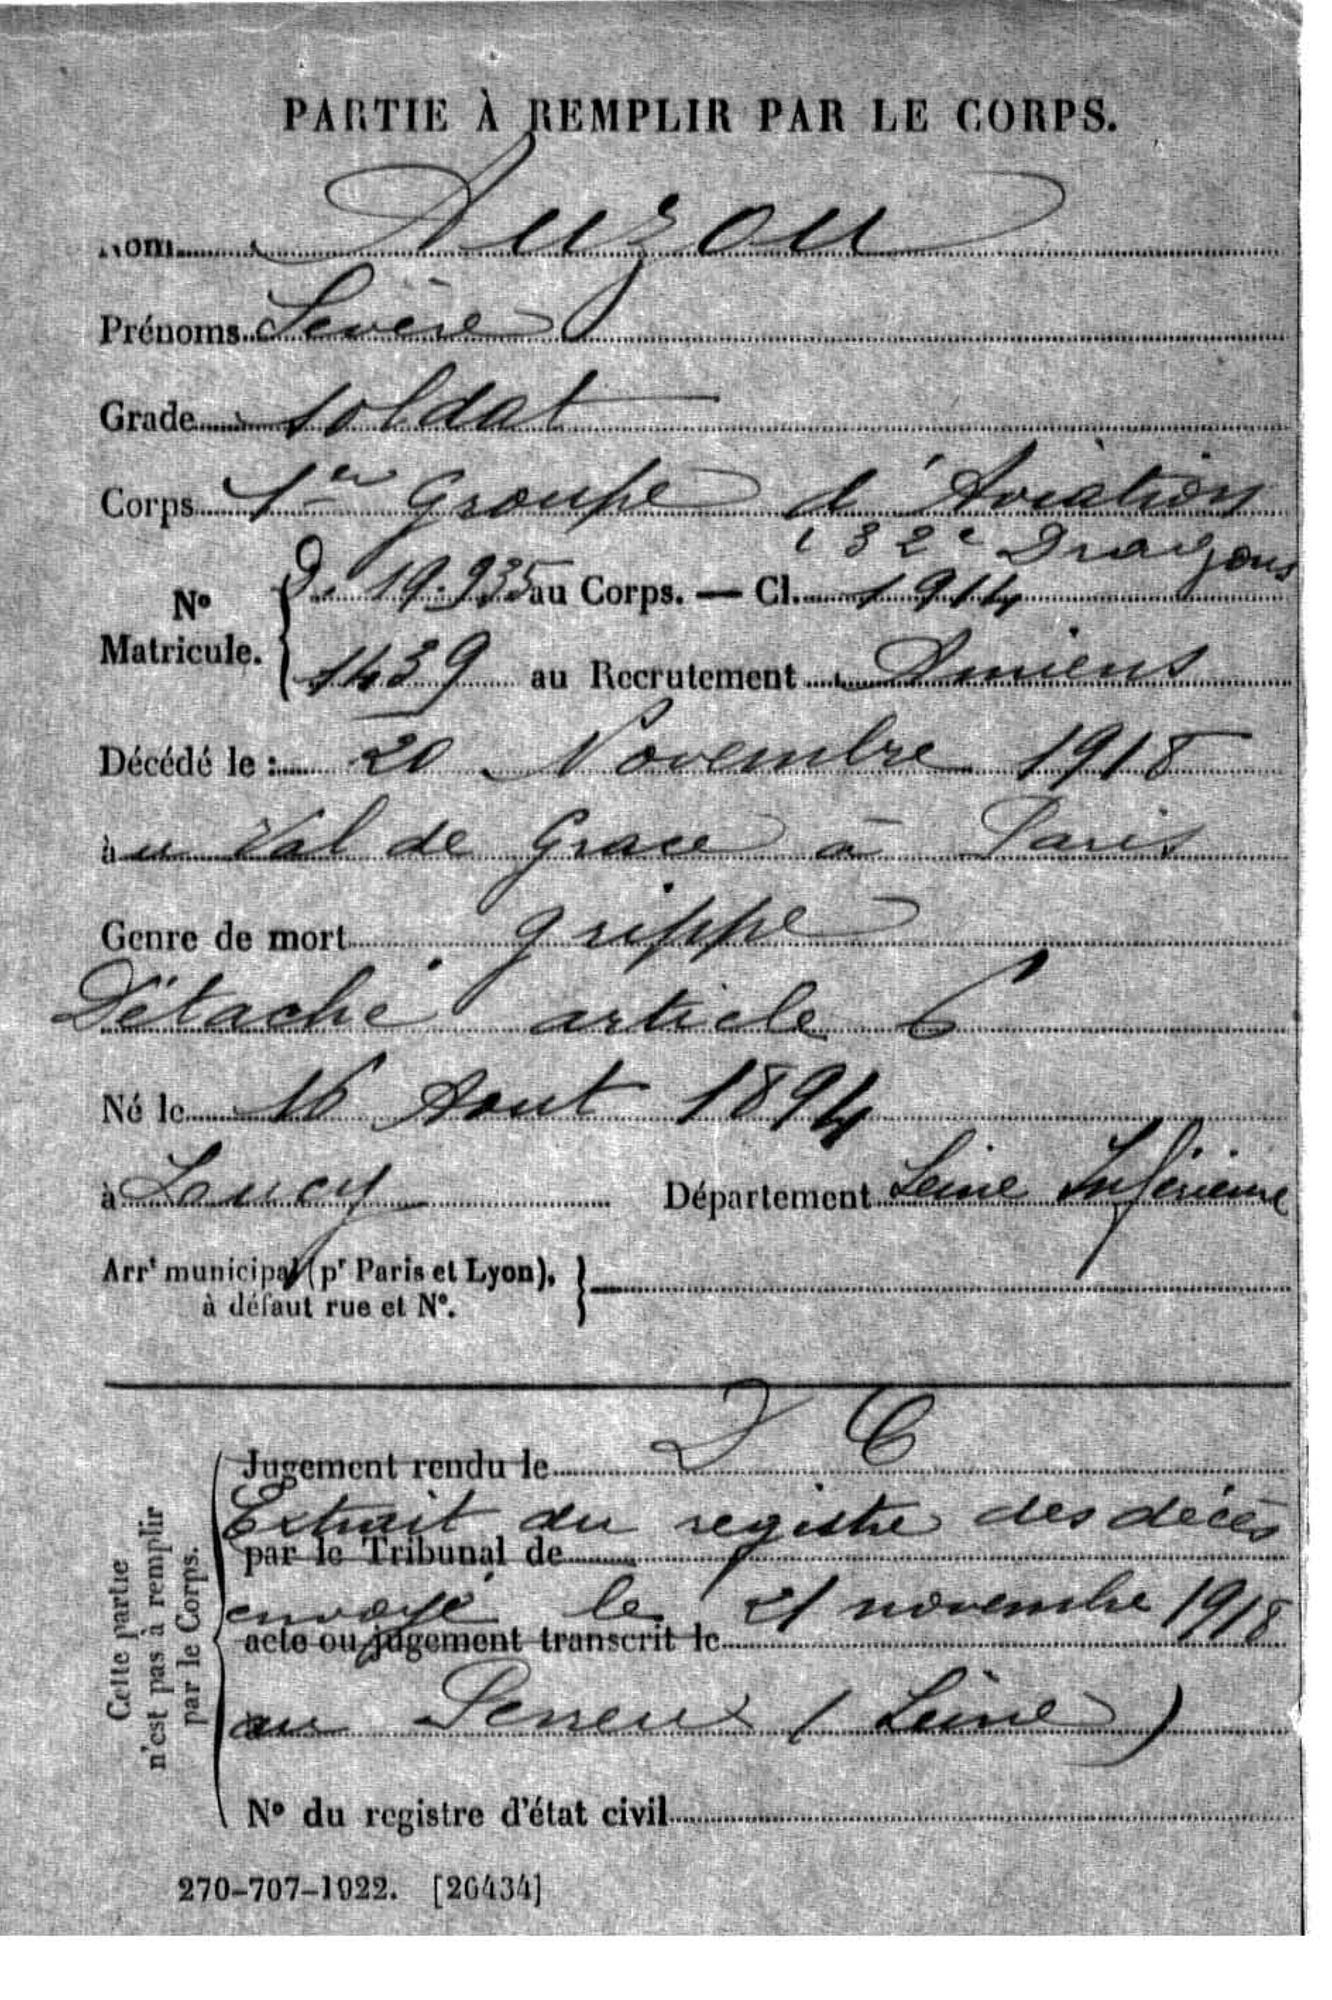 PARTIE À REMPLIR PAR LE CORPS.
Nom Auzou
Prénoms Sévère
Grade soldat
Corps 1er Groupe d'Aviation
( 32e Dragons
No Matricule. { D. 19.935 au Corps. — Cl. 1914
1439 au Recrutement Amiens
Décédé le : 20 Novembre 1918
au Val de Grace à Paris
Genre de mort grippe
Détaché article 6
Né le 16 Aout 1894
à Lucy Département Seine Inférieure
Arrt municipal (pr Paris et Lyon), }
à défaut rue et No.
Cette partie n'est pas à remplir par le Corps.
Jugement rendu le
Extrait du registre des décès
par le Tribunal de
envoyé le 21 novembre 1918
acte ou jugement transcrit le
au Perreux (Seine)
No du registre d'état civil
270-707-1922. [26434]